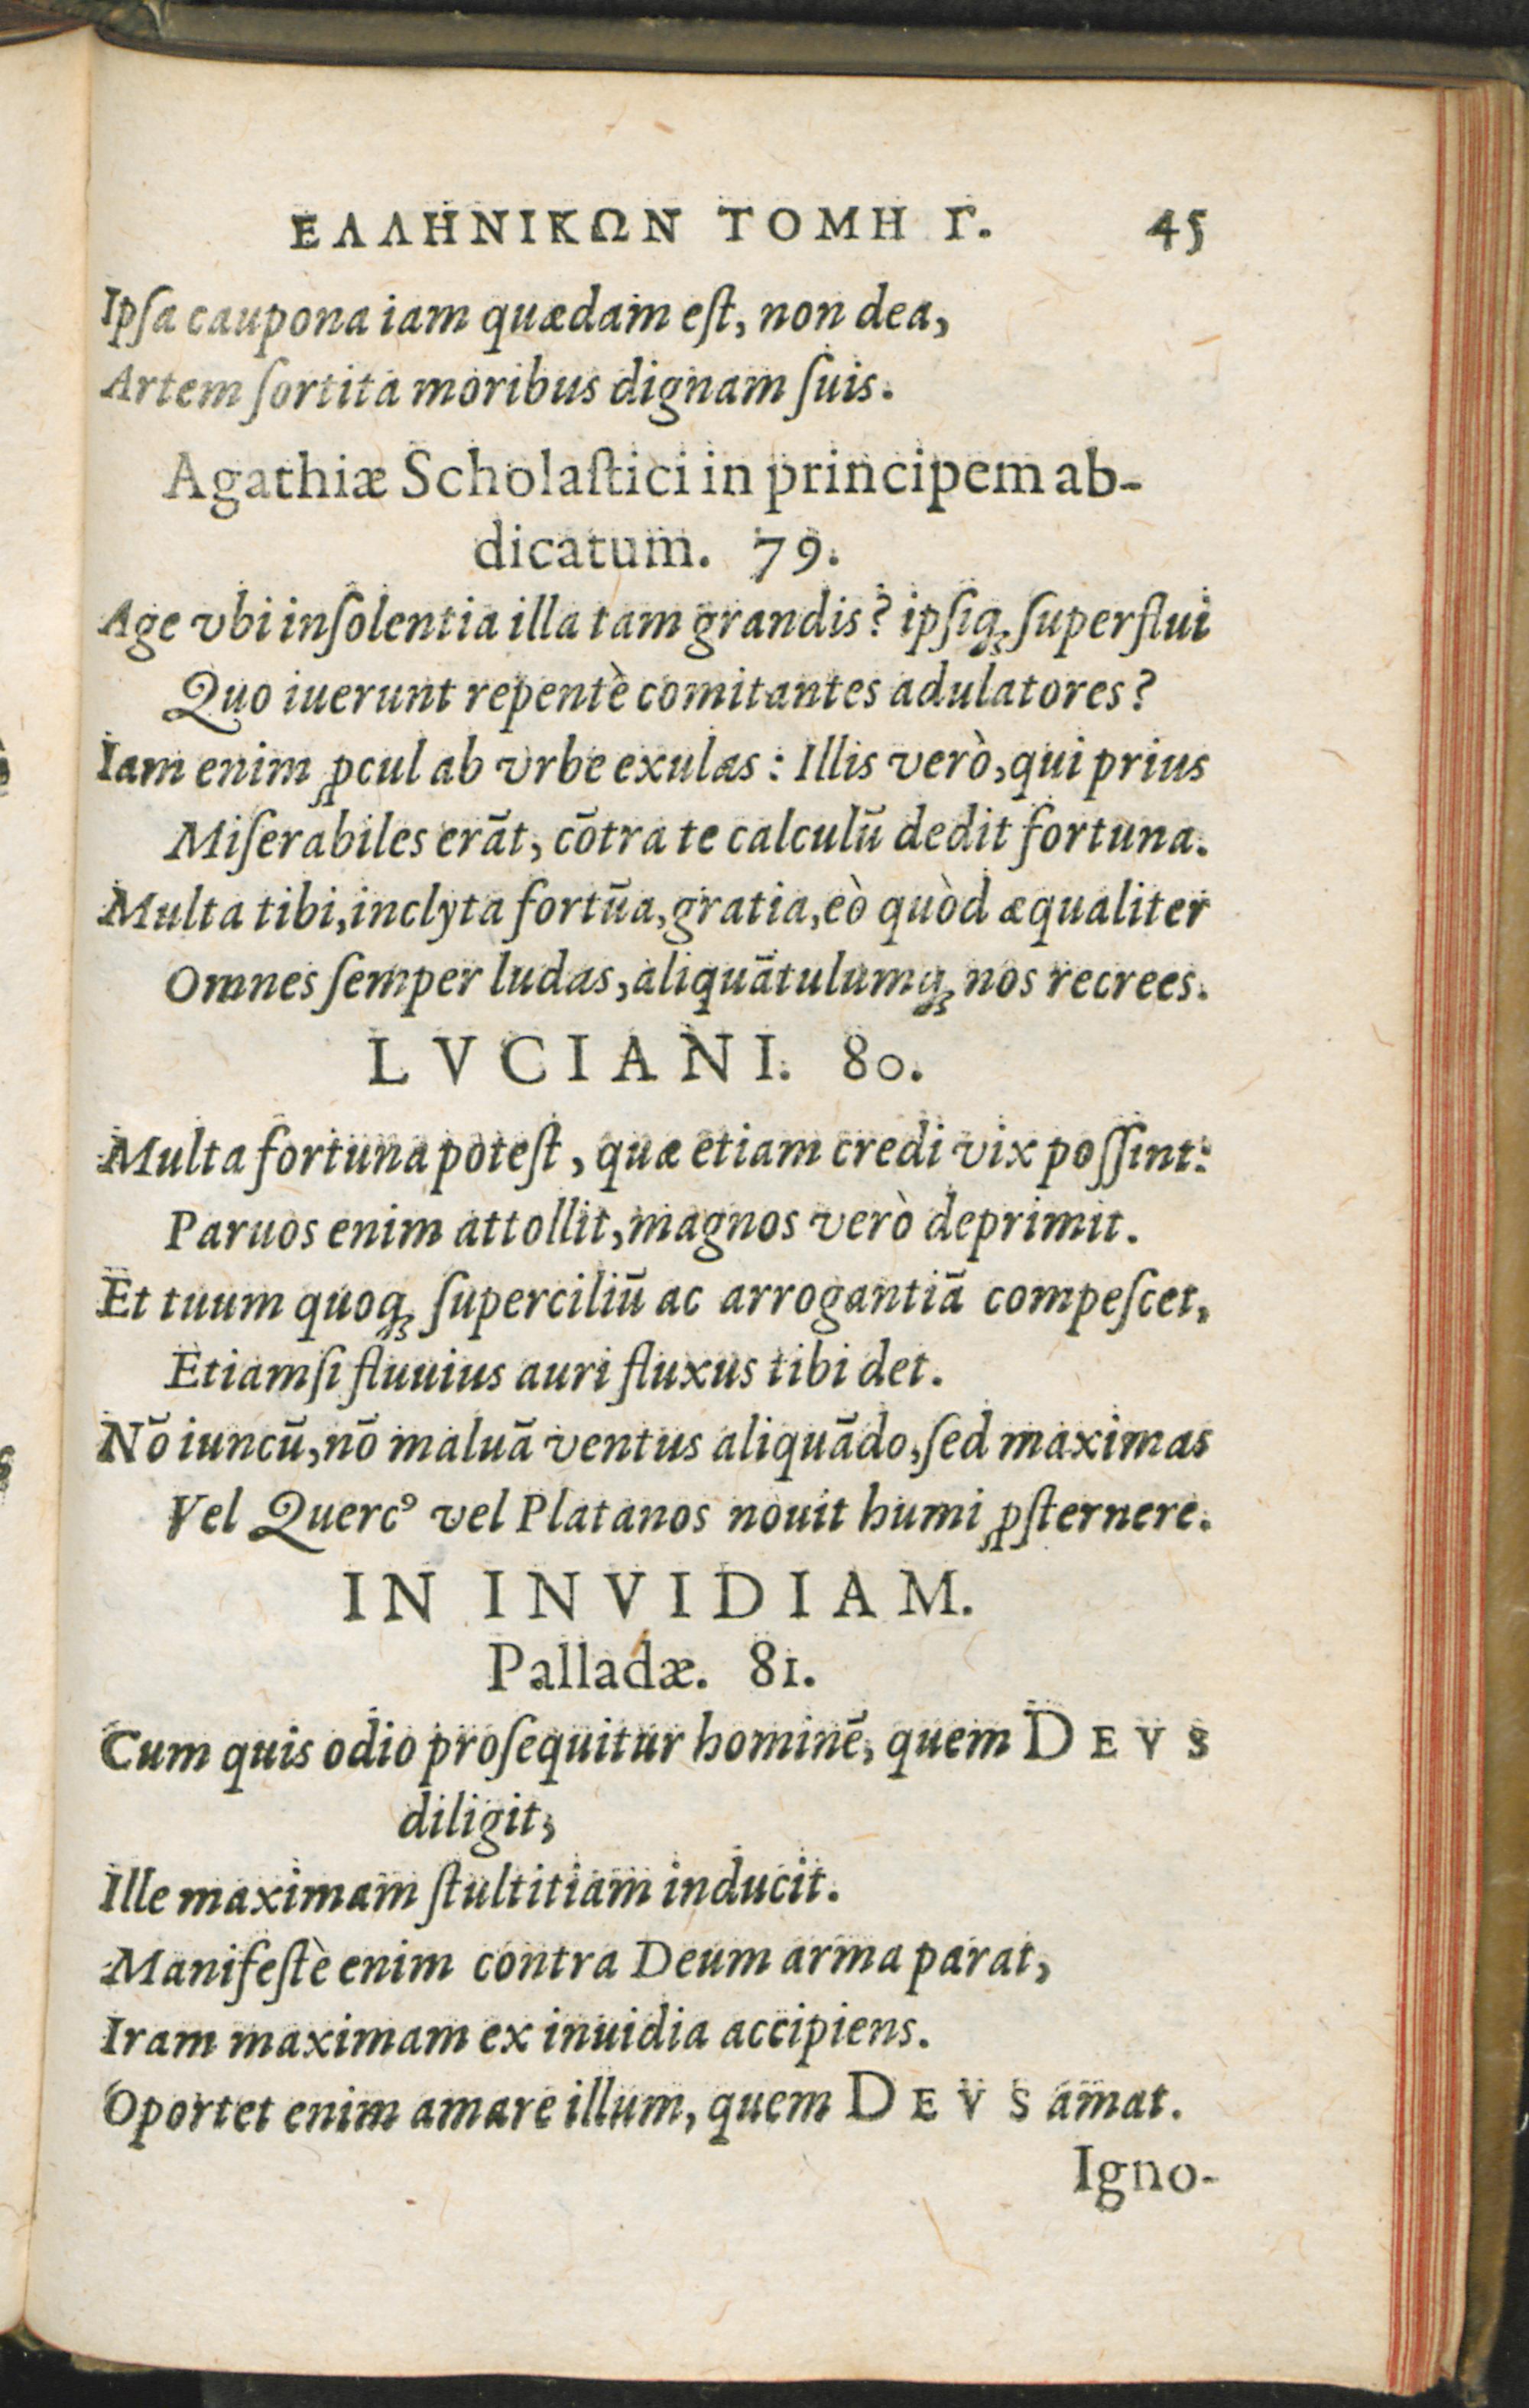 ΕΛΛΗΝΙΚΩΝ ΤΟΜΗ Γ. 45
Ipſa caupona iam quædam eſt, non dea,
Artem ſortita moribus dignam ſuis.
Agathiæ Scholaſtici in principem ab-
dicatum. 79.
Age vbi inſolentia illa tam grandis? ipſiq́ꝫ ſuperflui
Quo iuerunt repentè comitantes adulatores?
Iam enim ꝓcul ab vrbe exulas: Illis verò, qui prius
Miſerabiles erãt, cõtra te calculũ dedit fortuna.
Multa tibi, inclyta fortũa, gratia, eò quòd æqualiter
Omnes ſemper ludas, aliquãtulumqꝫ nos recrees.
LVCIANI. 80.
Multa fortuna poteſt, quæ etiam credi vix poſſint:
Paruos enim attollit, magnos verò deprimit.
Et tuum quoqꝫ ſuperciliũ ac arrogantiã compeſcet,
Etiamſi fluuius auri fluxus tibi det.
Nõ iuncũ, nõ maluã ventus aliquãdo, ſed maximas
Vel Quercꝰ vel Platanos nouit humi ꝓſternere.
IN INVIDIAM.
Palladæ. 81.
Cum quis odio proſequitur hominẽ, quem DEVS
diligit,
Ille maximam ſtultitiam inducit.
Manifeſtè enim contra Deum arma parat,
Iram maximam ex inuidia accipiens.
Oportet enim amare illum, quem DEVS amat.
Igno-